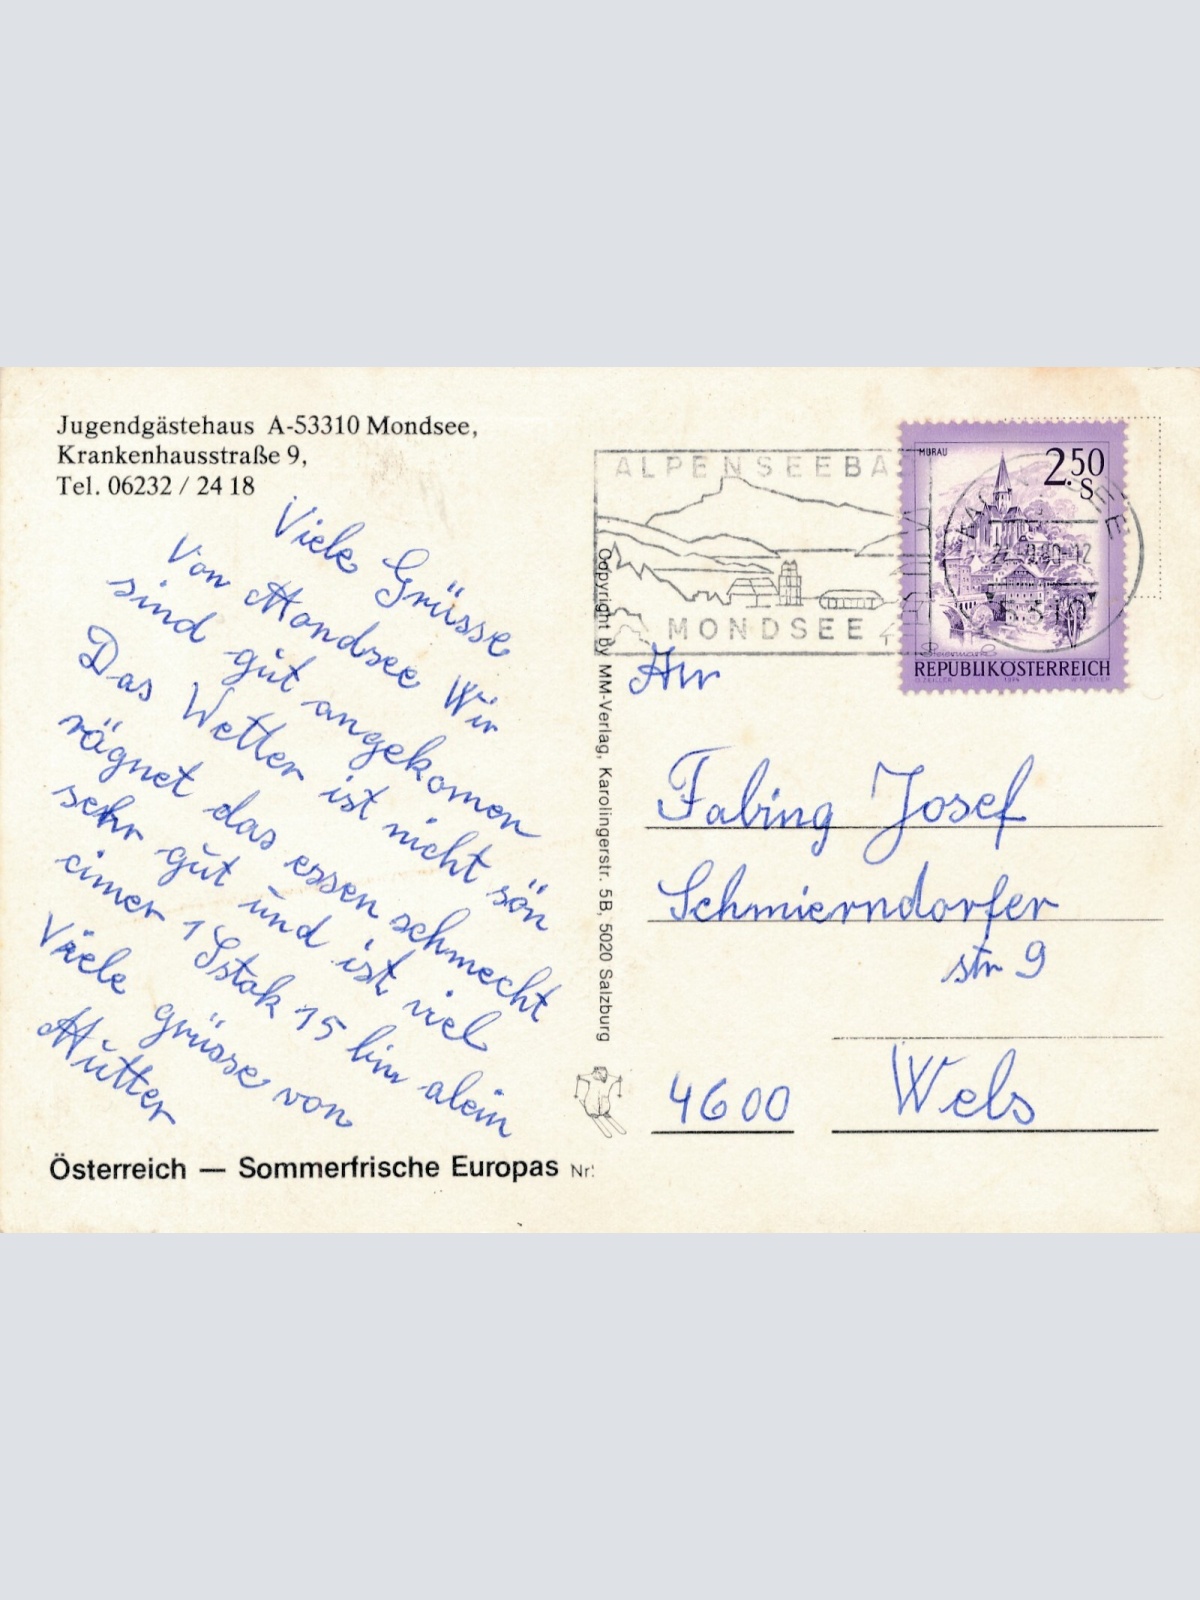 Jugendgästehaus A-53310 Mondsee,
Krankenhausstraße 9,
Tel. 06232 / 24 18
Viele Grüsse
Von Mondsee Wir
sind gut angekomen
Das Wetter ist nicht sön
rägnet das essen schmecht
sehr gut und ist viel
cimer 1 Sstak 15 bin alein
Viele grüsse von
Mutter
Österreich — Sommerfrische Europas Nr:
Copyright by MM-Verlag, Karolingerstr. 5B, 5020 Salzburg
ALPENSEEBA
MONDSEE
MURAU
2.50
S
Steiermark
REPUBLIK ÖSTERREICH
SEE
Fabing Josef
Schmierndorfer
str 9
4600 Wels